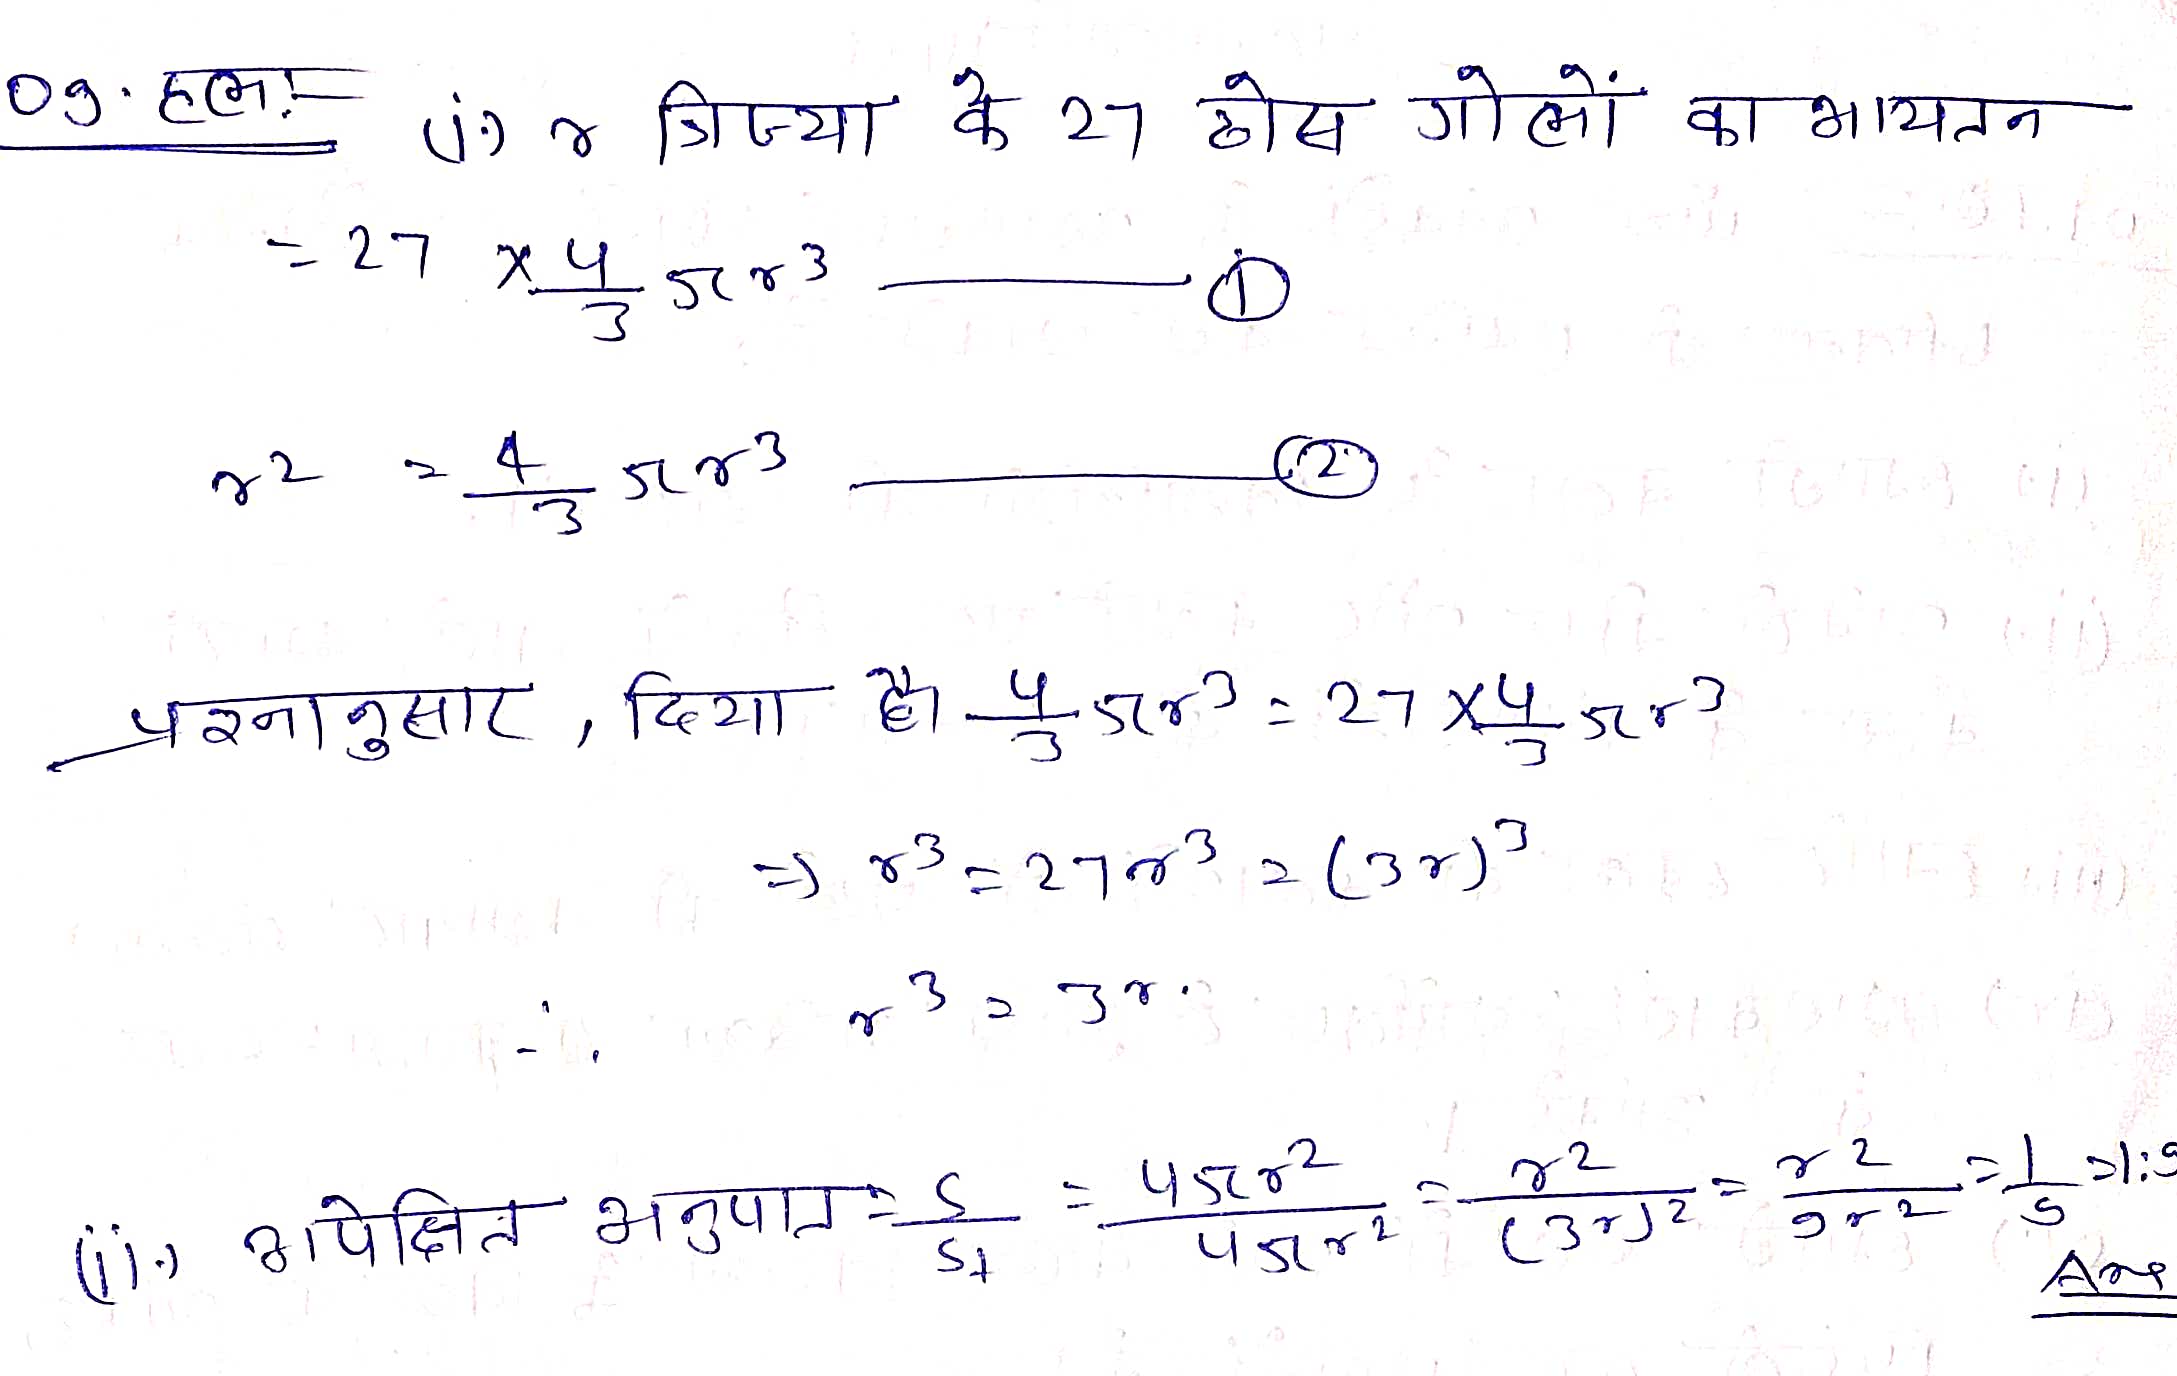 09. हल:-
(i.) r त्रिज्या के 27 ठोस गोलों का आयतन
= 27 × 4/3 πr³ ——— ①
r2 = 4/3 πr³ ——— ②
प्रश्नानुसार, दिया है। 4/3 πr³ = 27 × 4/3 πr³
=> r³ = 27r³ = (3r)³
∴ r³ = 3r.
(ii.) अपेक्षित अनुपात = S/S1 = 4πr²/4πr² = r²/(3r)² = r²/9r² = 1/9 = 1:9
Ans